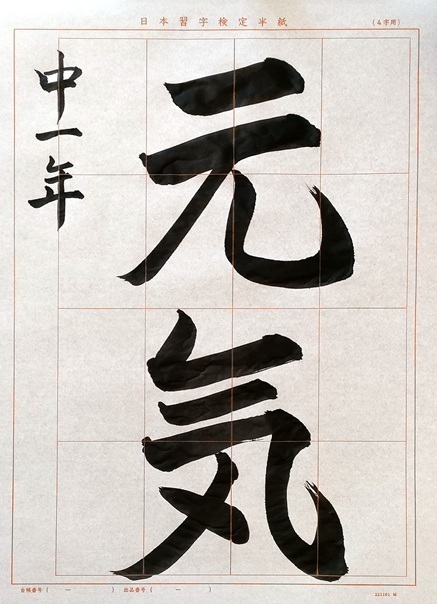 日本習字検定半紙
(4字用)
元気
中一年
台帳番号 ( — ) 出品番号 ( — )